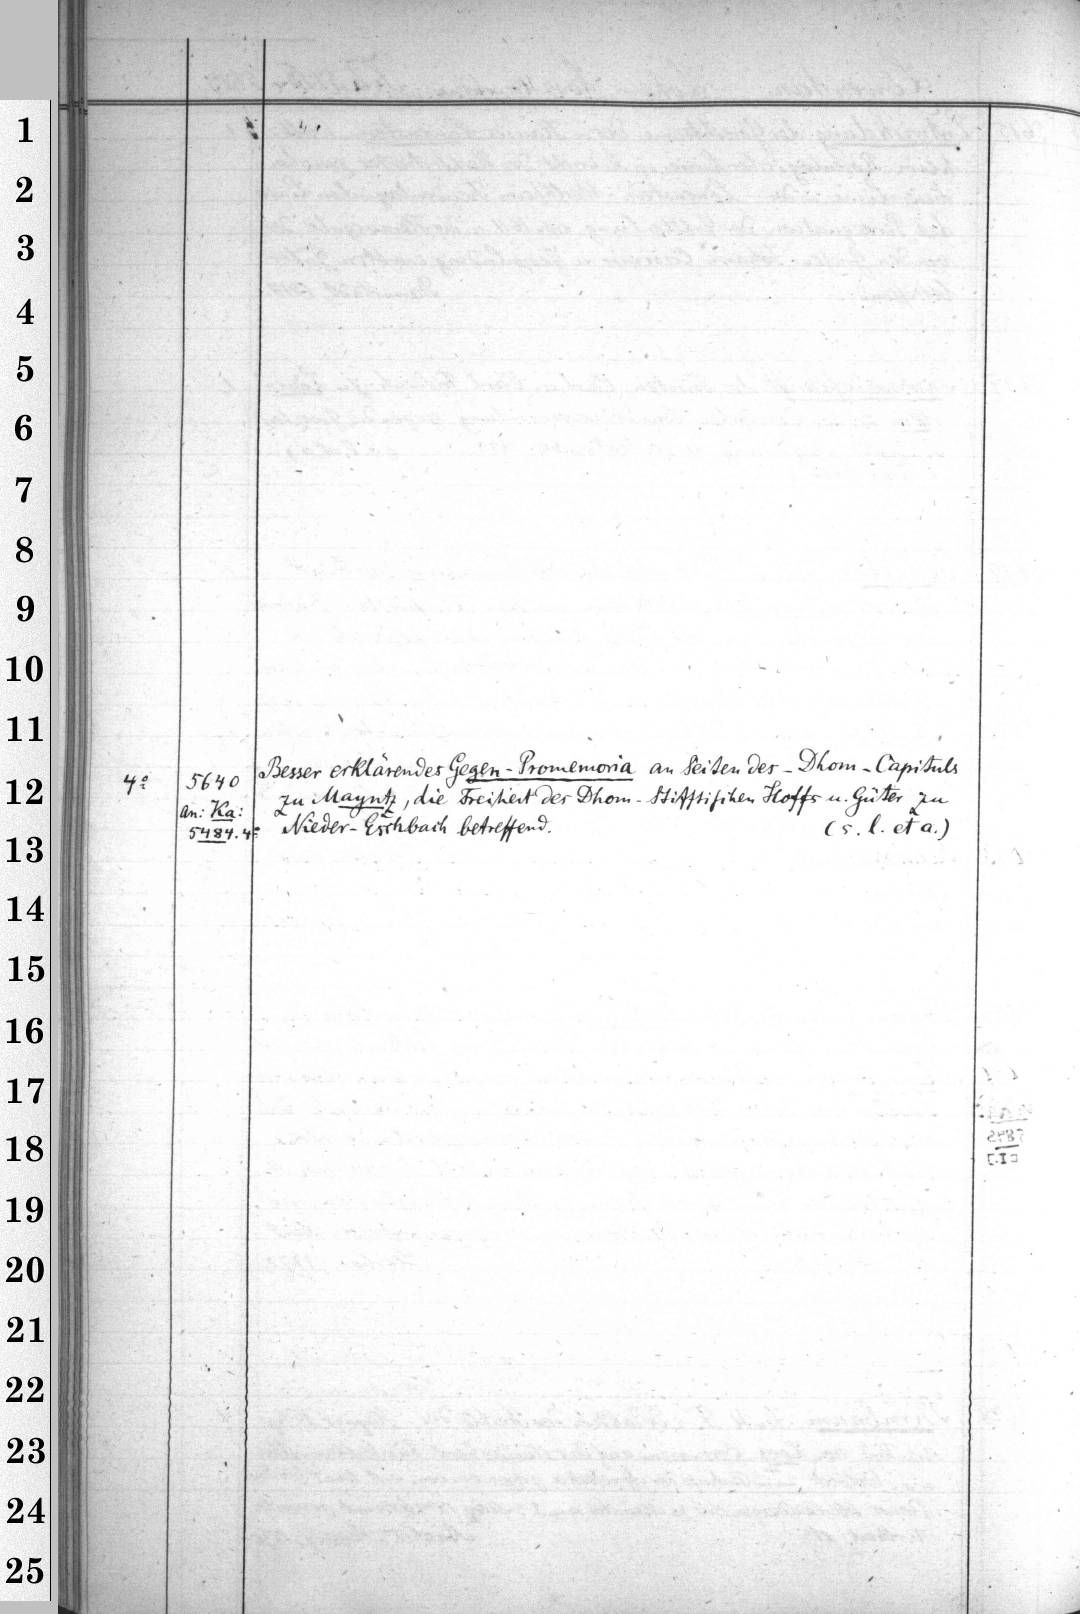 1
2
3
4
5
6
7
8
9
10
11
12
13
14
15
16
17
18
19
20
21
22
23
24
25
4º 5640 Besser erklärendes Gegen-Promemoria an Seiten des Dhom-Capituls
an: Ka: zu Mayntz, die Freiheit des Dhom-Stifftsischen Hoffs u. Güter zu
5484.4º Nieder-Eschbach betreffend. (s. l. et a.)